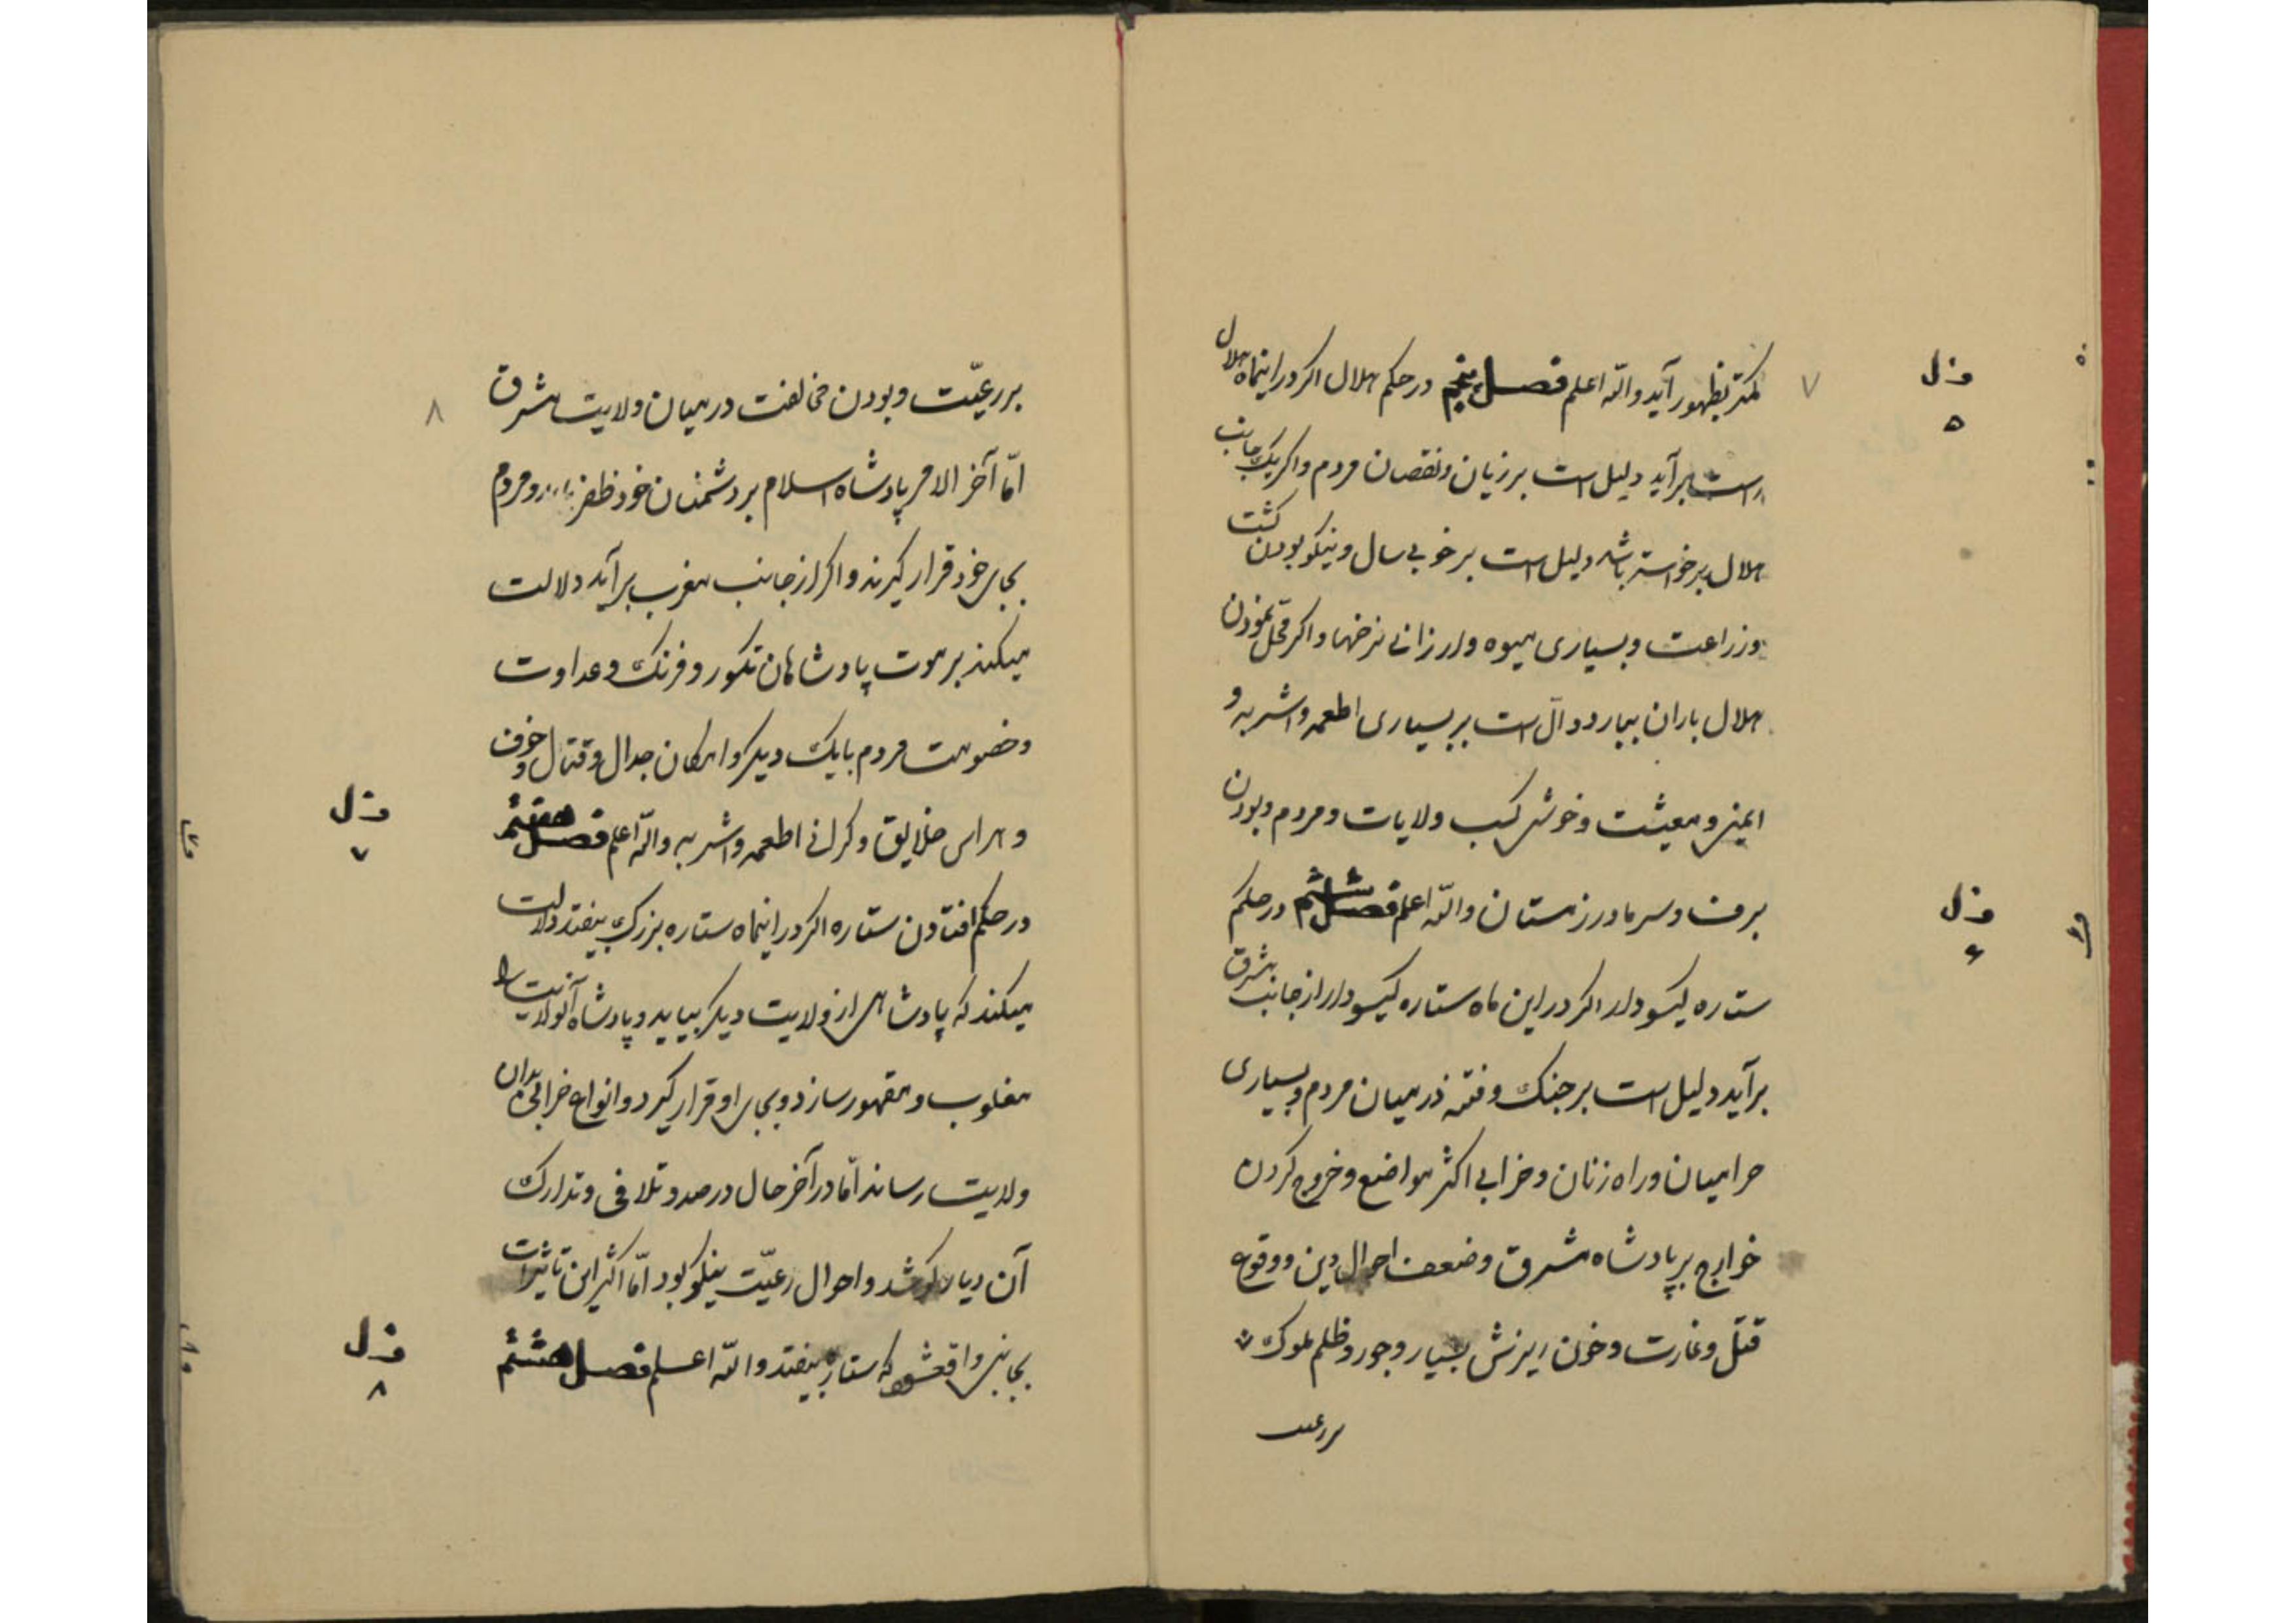 ۷
کمتر بظهور آید واللّه اعلم فصل پنجم در حکم هلال اکر در اینماه هلال
راست برآید دلیل است بر زیان ونقصان مردم واکر یک جانب
هلال برخواسته باشد دلیل است بر خوبی سال ونیکو بودن کشت
وزراعت وبسیاری میوه وارزانی نرخها واکر محل نمودن
هلال باران ببارد دالّ است بر بسیاری اطعمه واشربه و
ایمنی ومعیشت وخوشی کسب ولایات ومردم وبودن
برف وسرما در زمستان واللّه اعلم فصل ششم در حکم
ستاره کیسودار اکر در این ماه ستاره کیسودار از جانب مشرق
برآید دلیل است بر جنک وفتنه در میان مردم وبسیاری
حرامیان وراه زنان وخرابی اکثر مواضع وخروج کردن
خوارج بر پادشاه مشرق وضعف احوال دین ووقوع
قتل وغارت وخون ریزش بسیار وجور وظلم ملوک
بررعیت
فصل
۵
فصل
۶
۸
بر رعیّت وبودن مخالفت در میان ولایت مشرق
امّا آخر الامر پادشاه اسلام بر دشمنان خود ظفر یابد ومردم
بجای خود قرار کیرند واکر از جانب مغرب برآید دلالت
میکند بر موت پادشاهان تکور وفرنک وعداوت
وخصومت مردم بایک دیکر وامکان جدال وقتال وخوف
وهراس خلایق وکرانی اطعمه واشربه واللّه اعلم فصل هفتم
در حکم افتادن ستاره اکر در اینماه ستاره بزرک بیفتد دلالت
میکند که پادشاهی از ولایت دیکر بیاید وپادشاه آنولایت را
مغلوب ومقهور سازد وبجای او قرار کیرد وانواع خرابی بدان
ولایت رساند امّا در آخر حال در صدد تلافی وتدارک
آن دیار کوشد واحوال رعیّت نیکو بود امّا اکثر این تاثیرات
بجانبی واقع شود که ستاره بیفتد واللّه اعلم فصل هشتم
فصل
۷
فصل
۸